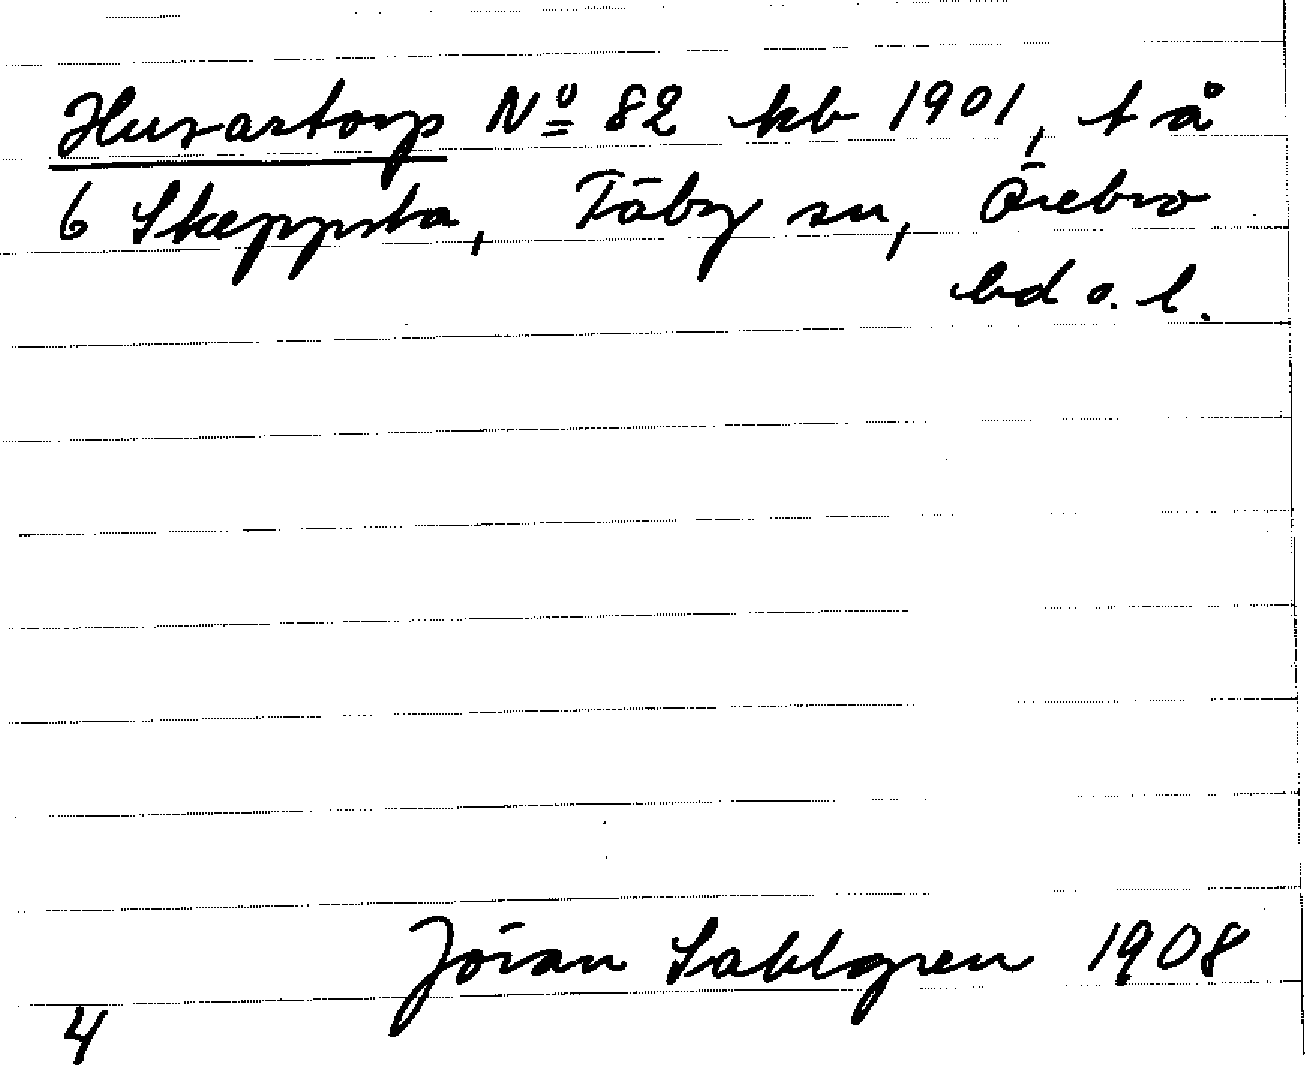 Husartorp Nº 82 kb 1901, t å
6 Skeppsta, Täby sn, Örebro
hd o. l.
Jöran Sahlgren 1908
4